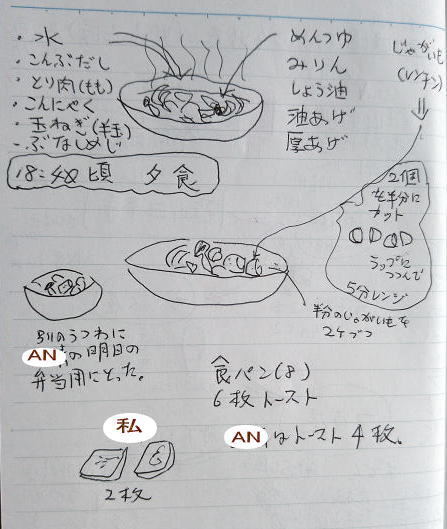 ・水
・こんぶだし
・とり肉(もも)
・こんにゃく
・玉ねぎ(半玉)
・ぶなしめじ
めんつゆ
みりん
しょう油
油あげ
厚あげ
じゃがいも
(レンチン)
18:40頃 夕食
2個
を半分に
カット
ラップに
つつんで
5分レンジ
半分のじゃがいもを
2ケづつ
別のうつわに
AN の明日の
弁当用にとった。
食パン(8)
6枚トースト
私
2枚
AN はトースト4枚。